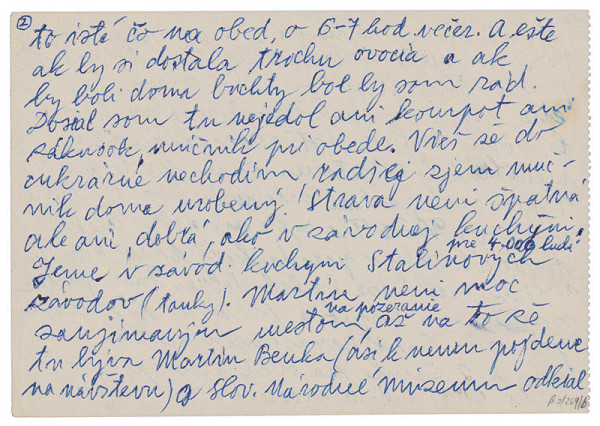 2
to isté čo na obed, o 6-7 hod. večer. A ešte
ak by si dostala trochu ovocia a ak
by boli doma buchty bol by som rád.
Dosiaľ som tu nejedol ani kompot ani
zákusok, múčnik pri obede. Vieš že do
cukrárne nechodím radšej zjem múč-
nik doma urobený! Strava neni špatná
ale ani dobrá, ako v závodnej kuchyni.
pre 4.000 ľudí.
Jeme v závod. kuchyni Stalinových
závodov (tanky). Martin neni moc
zaujímavým mestom, až na to že
na pozeranie
tu býva Martin Benka (asi k nemu pojdeme
na návštevu) a Slov. Národné múzeum odkiaľ